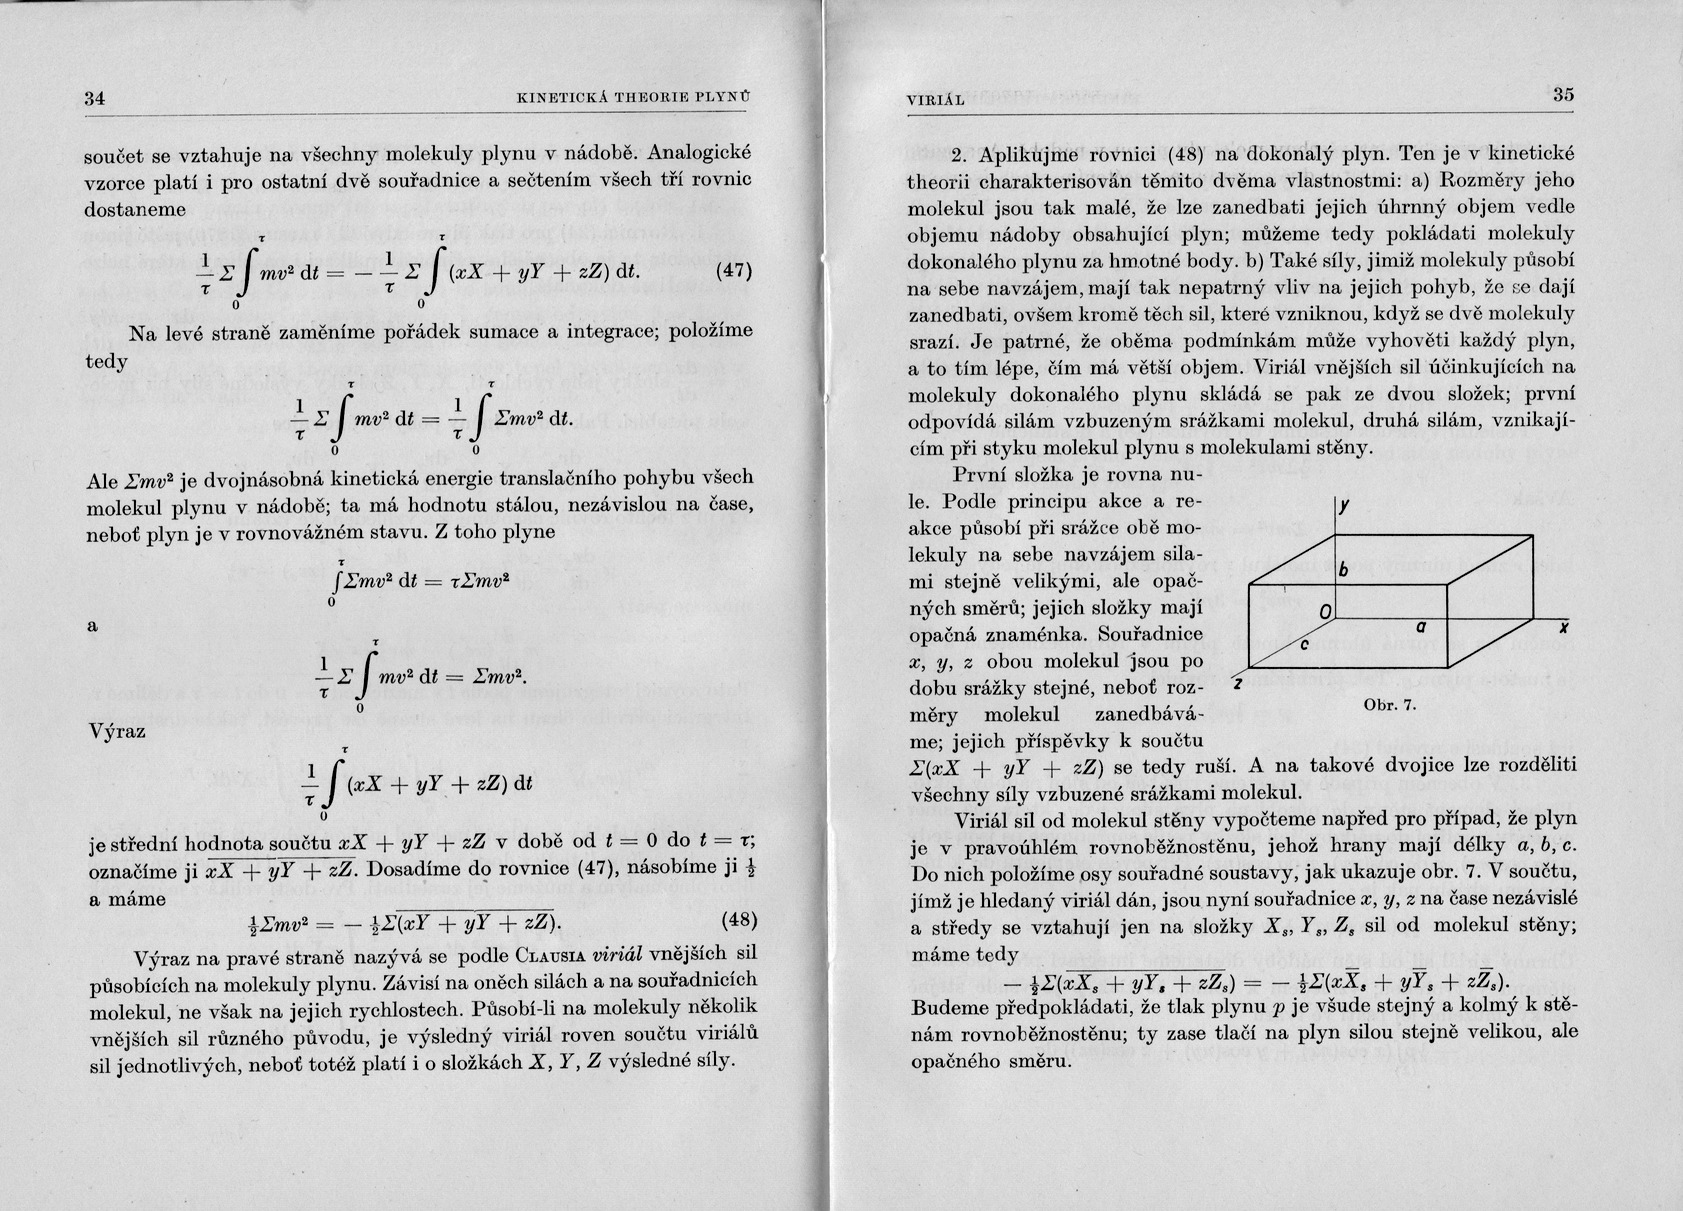 34
KINETICKÁ THEORIE PLYNŮ
součet se vztahuje na všechny molekuly plynu v nádobě. Analogické
vzorce platí i pro ostatní dvě souřadnice a sečtením všech tří rovnic
dostaneme
1/τ Σ ∫₀^τ mv² dt = − 1/τ Σ ∫₀^τ (xX + yY + zZ) dt. (47)
Na levé straně zaměníme pořádek sumace a integrace; položíme
tedy
1/τ Σ ∫₀^τ mv² dt = 1/τ ∫₀^τ Σmv² dt.
Ale Σmv² je dvojnásobná kinetická energie translačního pohybu všech
molekul plynu v nádobě; ta má hodnotu stálou, nezávislou na čase,
neboť plyn je v rovnovážném stavu. Z toho plyne
∫₀^τ Σmv² dt = τΣmv²
a
1/τ Σ ∫₀^τ mv² dt = Σmv².
Výraz
1/τ ∫₀^τ (xX + yY + zZ) dt
je střední hodnota součtu xX + yY + zZ v době od t = 0 do t = τ;
označíme ji x̅X̅ ̅+̅ ̅y̅Y̅ ̅+̅ ̅z̅Z̅. Dosadíme do rovnice (47), násobíme ji ½
a máme
½Σmv² = − ½Σ(x̅Y̅ ̅+̅ ̅y̅Y̅ ̅+̅ ̅z̅Z̅). (48)
Výraz na pravé straně nazývá se podle CLAUSIA viriál vnějších sil
působících na molekuly plynu. Závisí na oněch silách a na souřadnicích
molekul, ne však na jejich rychlostech. Působí-li na molekuly několik
vnějších sil různého původu, je výsledný viriál roven součtu viriálů
sil jednotlivých, neboť totéž platí i o složkách X, Y, Z výsledné síly.
VIRIÁL
35
2. Aplikujme rovnici (48) na dokonalý plyn. Ten je v kinetické
theorii charakterisován těmito dvěma vlastnostmi: a) Rozměry jeho
molekul jsou tak malé, že lze zanedbati jejich úhrnný objem vedle
objemu nádoby obsahující plyn; můžeme tedy pokládati molekuly
dokonalého plynu za hmotné body. b) Také síly, jimiž molekuly působí
na sebe navzájem, mají tak nepatrný vliv na jejich pohyb, že se dají
zanedbati, ovšem kromě těch sil, které vzniknou, když se dvě molekuly
srazí. Je patrné, že oběma podmínkám může vyhověti každý plyn,
a to tím lépe, čím má větší objem. Viriál vnějších sil účinkujících na
molekuly dokonalého plynu skládá se pak ze dvou složek; první
odpovídá silám vzbuzeným srážkami molekul, druhá silám, vznikají-
cím při styku molekul plynu s molekulami stěny.
První složka je rovna nu-
le. Podle principu akce a re-
akce působí při srážce obě mo-
lekuly na sebe navzájem sila-
mi stejně velikými, ale opač-
ných směrů; jejich složky mají
opačná znaménka. Souřadnice
x, y, z obou molekul jsou po
dobu srážky stejné, neboť roz-
měry molekul zanedbává-
me; jejich příspěvky k součtu
y
b
O
a
x
c
z
Obr. 7.
Σ(xX + yY + zZ) se tedy ruší. A na takové dvojice lze rozděliti
všechny síly vzbuzené srážkami molekul.
Viriál sil od molekul stěny vypočteme napřed pro případ, že plyn
je v pravoúhlém rovnoběžnostěnu, jehož hrany mají délky a, b, c.
Do nich položíme osy souřadné soustavy, jak ukazuje obr. 7. V součtu,
jímž je hledaný viriál dán, jsou nyní souřadnice x, y, z na čase nezávislé
a středy se vztahují jen na složky Xₛ, Yₛ, Zₛ sil od molekul stěny;
máme tedy
− ½Σ(x̅X̅ₛ̅ ̅+̅ ̅y̅Y̅ₛ̅ ̅+̅ ̅z̅Z̅ₛ) = − ½Σ(xX̅ₛ + yY̅ₛ + zZ̅ₛ).
Budeme předpokládati, že tlak plynu p je všude stejný a kolmý k stě-
nám rovnoběžnostěnu; ty zase tlačí na plyn silou stejně velikou, ale
opačného směru.